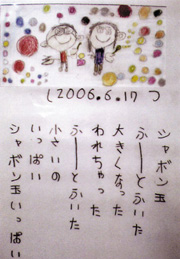 (2006.6.17)
シャボン玉
ふーとふいた
大きくなった
われちゃった
ふーとふいた
小さいの
いっぱい
シャボン玉いっぱい